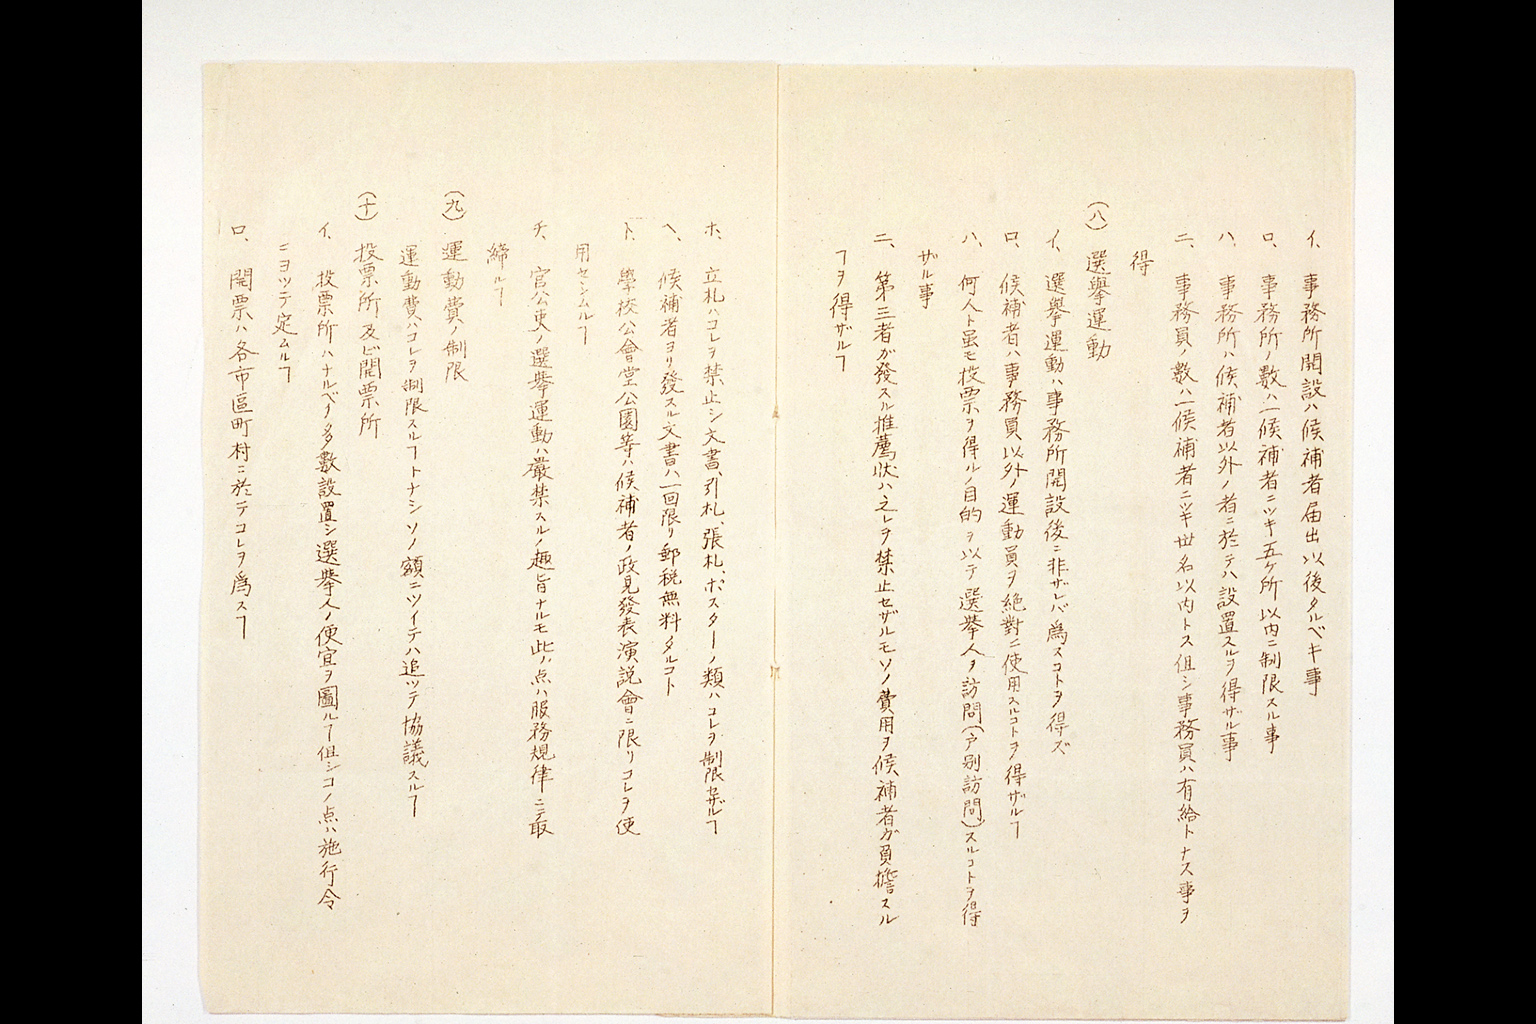 イ、事務所開設ハ候補者届出以後タルベキ事
ロ、事務所ノ数ハ一候補者ニツキ五ケ所以内ニ制限スル事
ハ、事務所ハ候補者以外ノ者ニ於テハ設置スルヲ得ザル事
ニ、事務員ノ数ハ一候補者ニツキ丗名以内トス但シ事務員ハ有給トナス事ヲ
得
(八)選挙運動
イ、選挙運動ハ事務所開設後ニ非ザレバ為スコトヲ得ズ
ロ、候補者ハ事務員以外ノ運動員ヲ絶對ニ使用スルコトヲ得ザルヿ
ハ、何人ト虽モ投票ヲ得ルノ目的ヲ以テ選挙人ヲ訪問(戸別訪問)スルコトヲ得
ザル事
ニ、第三者ガ發スル推薦状ハ之レヲ禁止セザルモソノ費用ヲ候補者ガ負擔スル
ヿヲ得ザルヿ
ホ、立札ハコレヲ禁止シ文書、引札、張札、ポスターノ類ハコレヲ制限セザルヿ
ヘ、候補者ヨリ發スル文書ハ一回限リ郵税無料タルコト
ト、學校公會堂公園等ハ候補者ノ政見發表演説會ニ限リコレヲ使
用セシムルヿ
チ、官公吏ノ選挙運動ハ嚴禁スルノ趣旨ナルモ此ノ点ハ服務規律ニテ取
締ルヿ
(九)運動費ノ制限
運動費ハコレヲ制限スルヿトナシソノ額ニツイテハ追ツテ協議スルヿ
(十)投票所及ビ開票所
イ、投票所ハナルベク多數設置シ選挙人ノ便宜ヲ圖ルヿ但シコノ点ハ施行令
ニヨツテ定ムルヿ
ロ、開票ハ各市區町村ニ於テコレヲ為スヿ